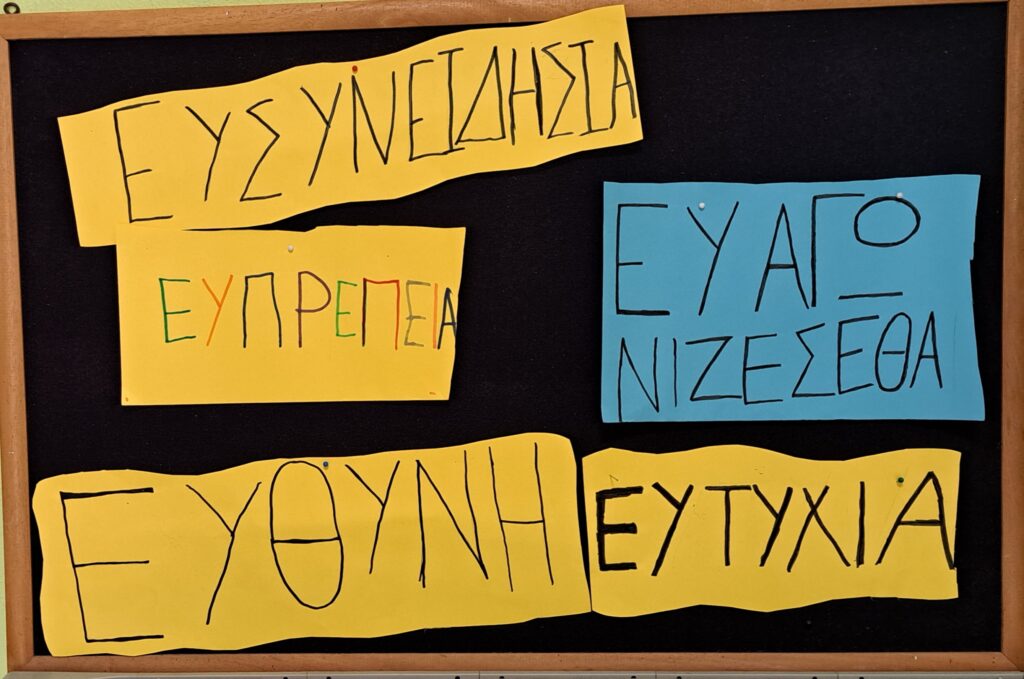 ΕΥΣΥΝΕΙΔΗΣΙΑ
ΕΥΠΡΕΠΕΙΑ
ΕΥΑΓΩ
ΝΙΖΕΣΕΘΑ
ΕΥΘΥΝΗ
ΕΥΤΥΧΙΑ